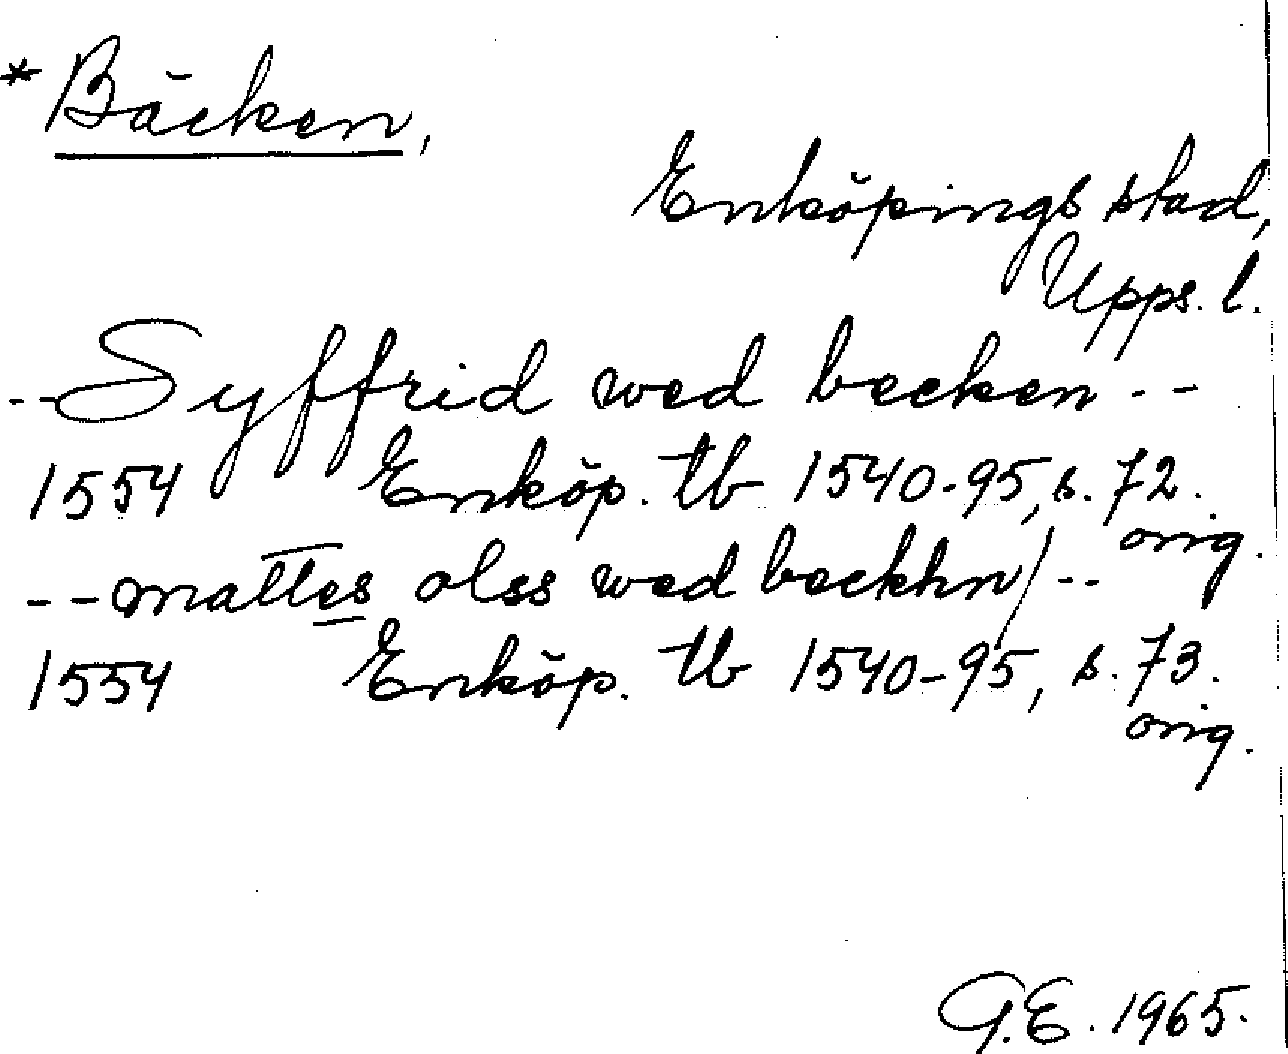 *Bäcken,
Enköpings stad,
Upps. l.
--Syffrid wed becken--
1554 Enköp. tb 1540-95, s. 72.
orig.
--mattes olss wed beckhn/--
1554 Enköp. tb 1540-95, s. 73.
orig.
G.E. 1965.